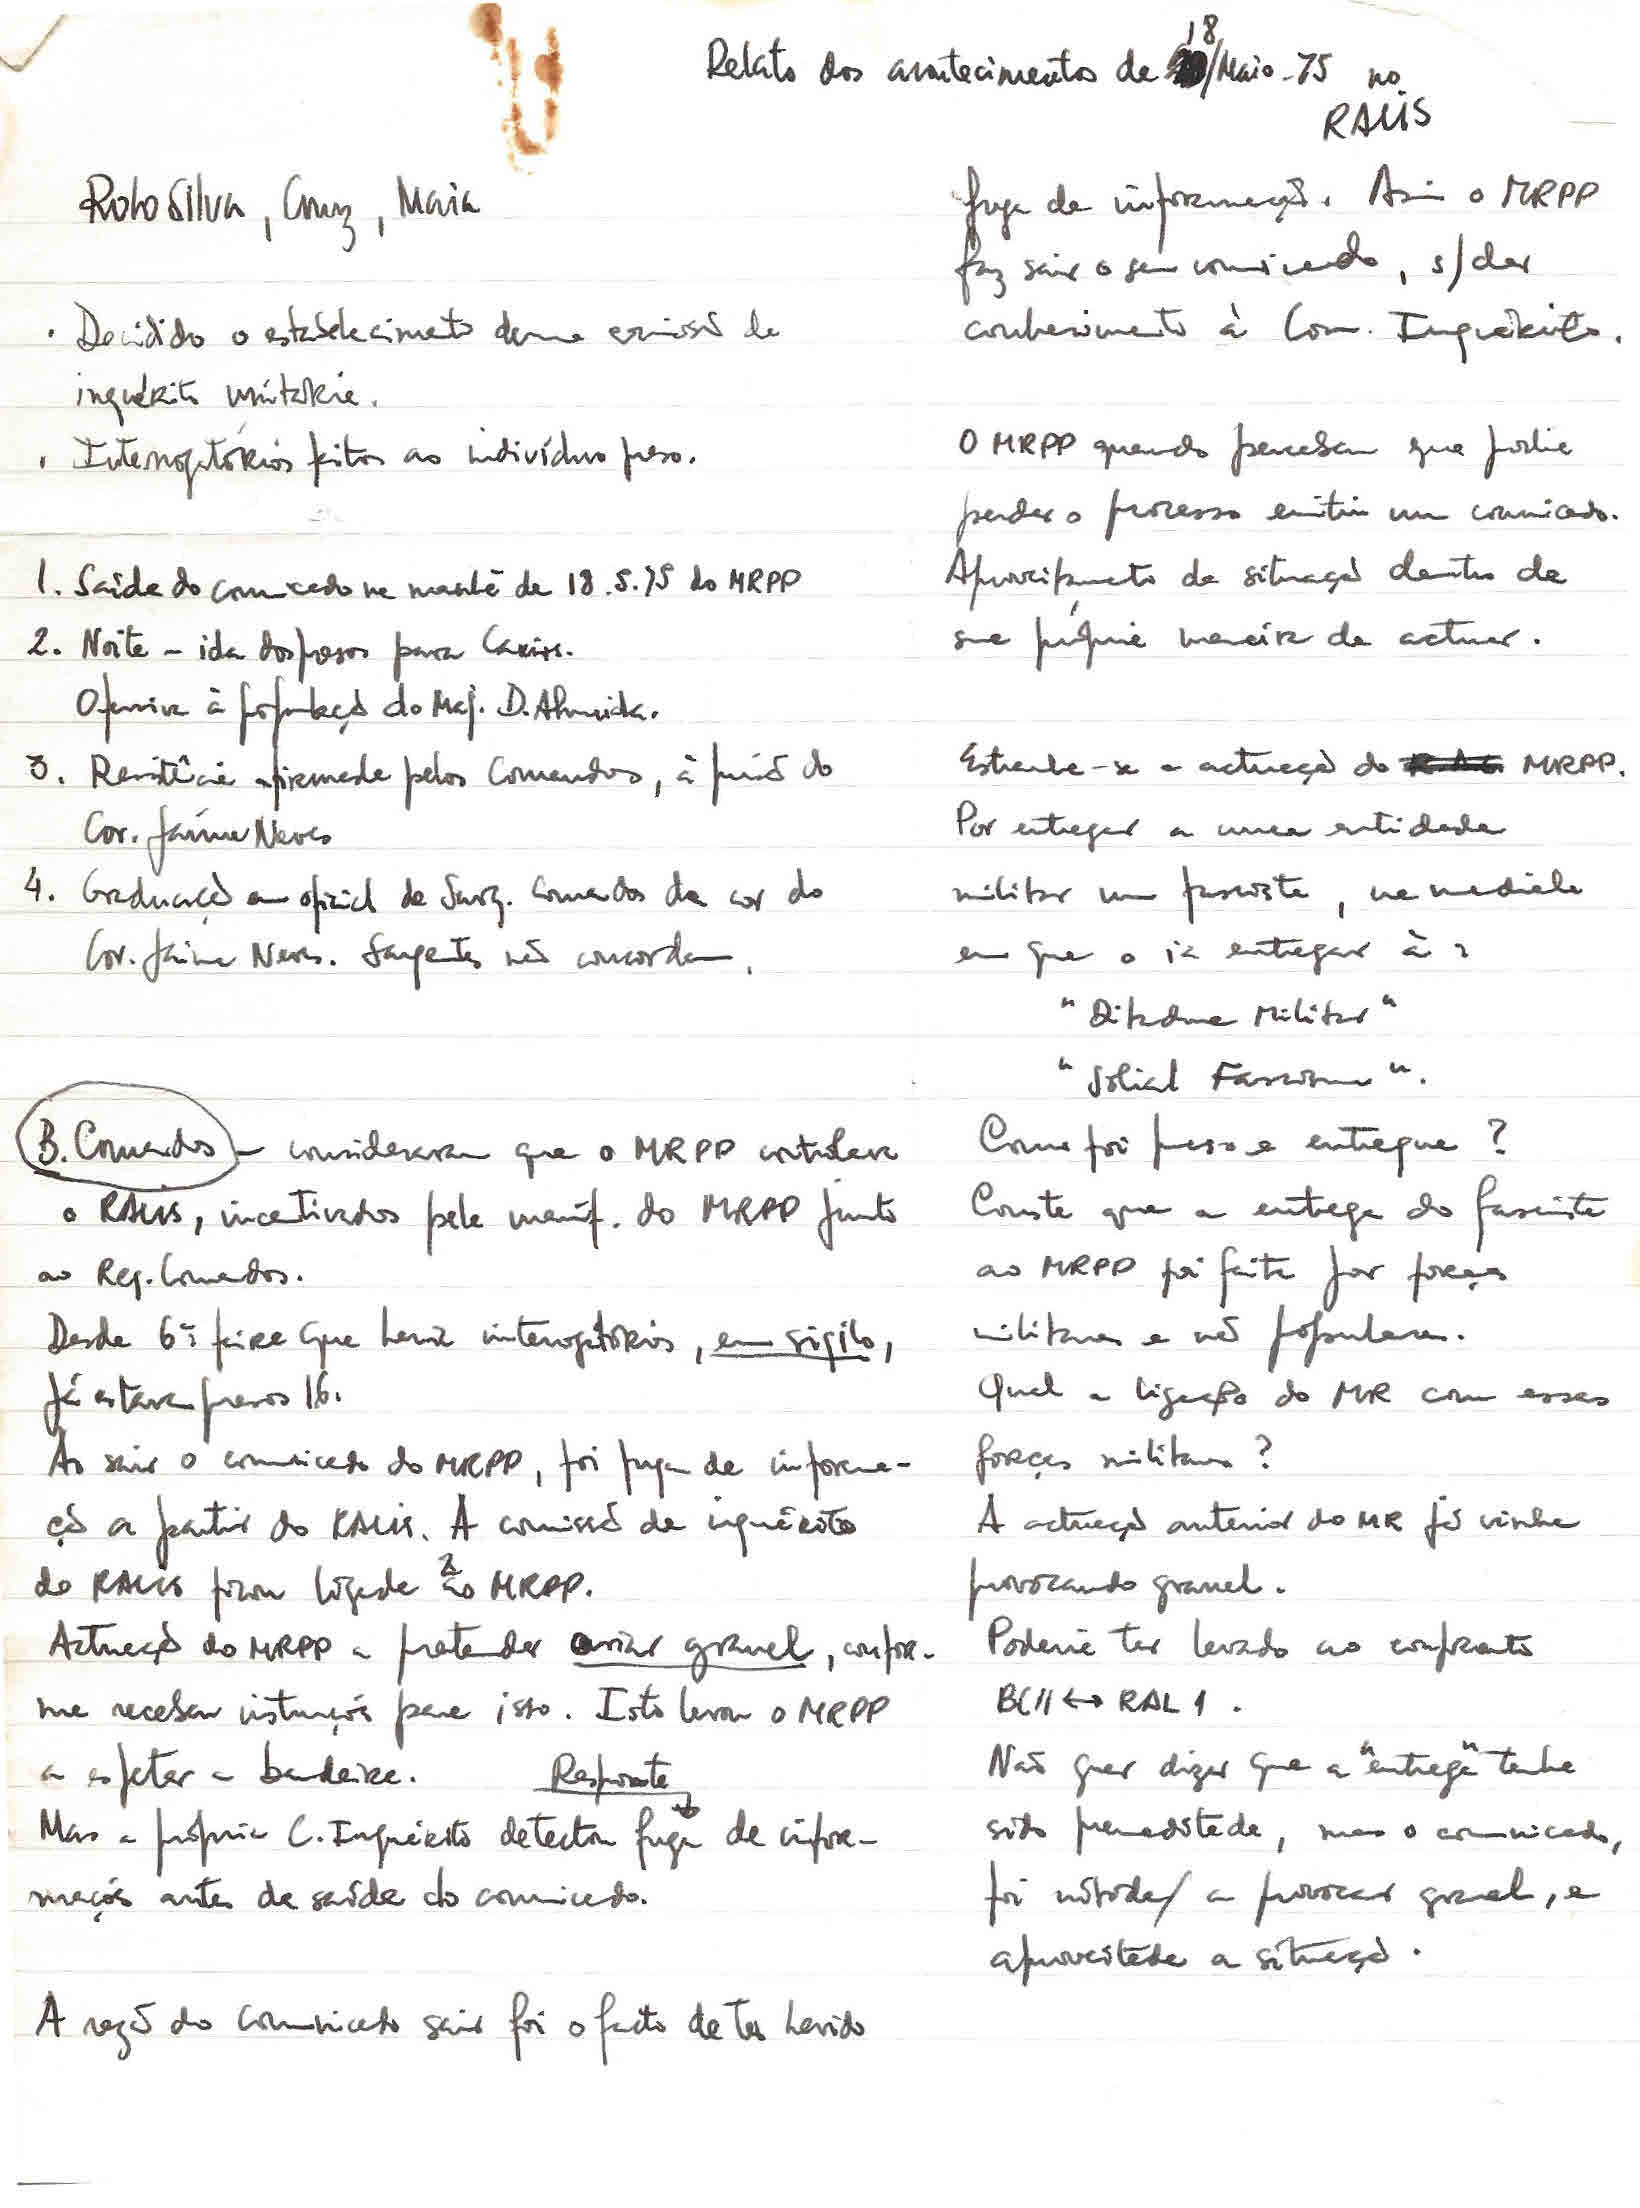 Relato dos acontecimentos de 18/Maio-75 no
RALIS
Robo Silva, Cruz, Maia
. Decidido o estabelecimento duma comissão de
inquérito unitária.
. Interrogatórios feitos ao indivíduo preso.
1. Saída do comunicado na manhã de 18.5.75 do MRPP
2. Noite - ida dos presos para Caxias.
Ofensiva à população do Maj. D. Almida.
3. Resistência afirmada pelos Comandos, à prisão do
Cor. Jaime Neves
4. Graduação em oficial de Sarg. Comandos da cor do
Cor. Jaime Neves. Sargentos não concordam.
B. Comandos - consideraram que o MRPP controlava
o RALIS, incentivados pela manif. do MRPP junto
ao Reg. Comandos.
Desde 6ª feira que havia interrogatórios, em sigilo,
já estavam presos 16.
Ao sair o comunicado do MRPP, foi fuga de informa-
ção a partir do RALIS. A comissão de inquérito
do RALIS ficou ligada ao MRPP.
Actuação do MRPP a pretender criar granel, confor-
me recebeu instruções para isso. Isto levou o MRPP
a espetar a bandeira. Resposta
Mas a própria C. Inquérito detectou fuga de infor-
mações antes da saída do comunicado.
A razão do comunicado sair foi o facto de ter havido
fuga de informação. Assim o MRPP
faz sair o seu comunicado, s/dar
conhecimento à Com. Inquérito.
O MRPP quando percebeu que podia
perder o processo emitiu um comunicado.
Aproveitamento da situação dentro da
sua própria maneira de actuar.
Estranha-se a actuação do MRPP.
Por entregar a uma entidade
militar um fascista, na medida
em que o ia entregar à:
"Ditadura Militar"
"Social Fascismo".
Como foi preso e entregue?
Conste que a entrega do fascista
ao MRPP foi feita por forças
militares e não populares.
Qual a ligação do MR com essas
forças militares?
A actuação anterior do MR já vinha
provocando granel.
Poderia ter levado ao confronto
BC11 ↔ RAL 1.
Não quer dizer que a "entrega" tenha
sido premeditada, mas o comunicado,
foi nitida/ a provocar granel, e
aproveitada a situação.